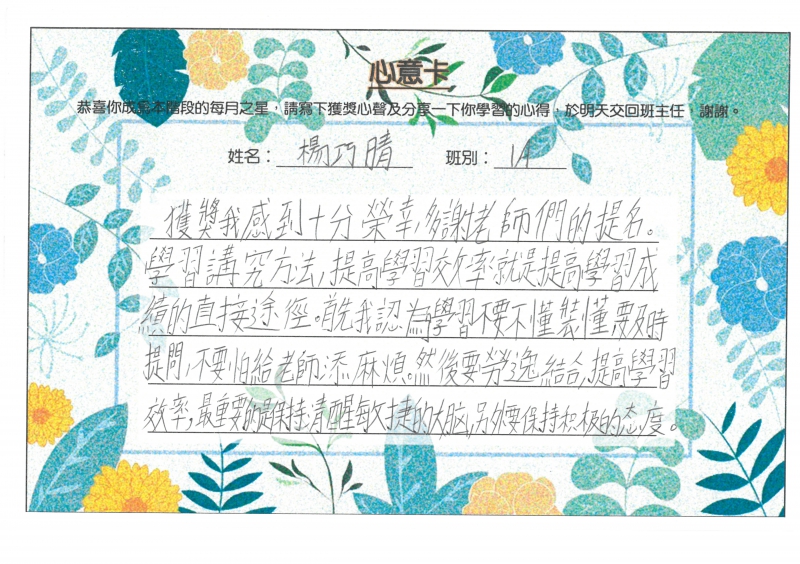 心意卡
恭喜你成為本階段的每月之星，請寫下獲獎心聲及分享一下你學習的心得，於明天交回班主任，謝謝。
姓名：楊巧晴 班別：1A
獲獎我感到十分榮幸,多謝老師們的提名。
學習講究方法,提高學習效率就是提高學習成
績的直接途徑。首先我認為學習不要不懂裝懂,要及時
提問,不要怕給老師添麻煩。然後要勞逸結合,提高學習
效率,最重要的是保持清醒敏捷的大脑,另外要保持积极的态度。